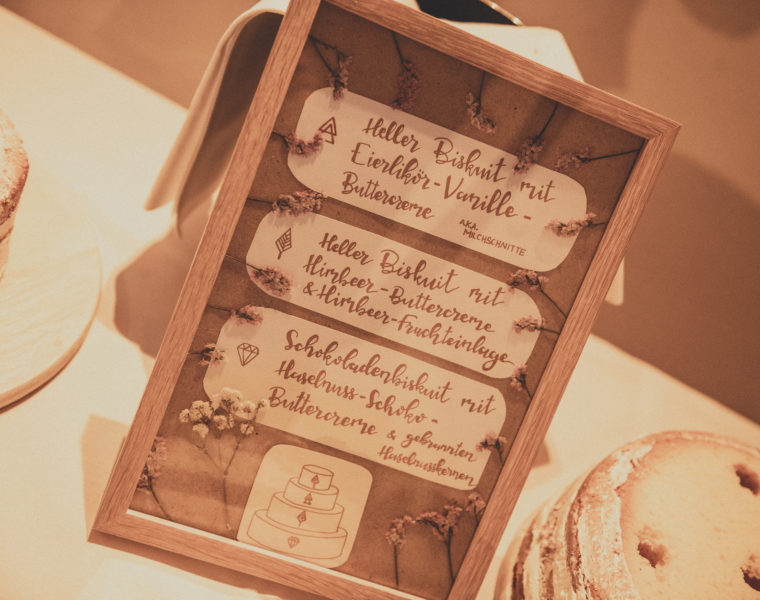 Heller Biskuit mit
Eierlikör-Vanille-
Buttercreme
A.K.A.
MILCHSCHNITTE
Heller Biskuit mit
Himbeer-Buttercreme
& Himbeer-Fruchteinlage
Schokoladenbiskuit mit
Haselnuss-Schoko-
Buttercreme & gebrannten
Haselnusskernen